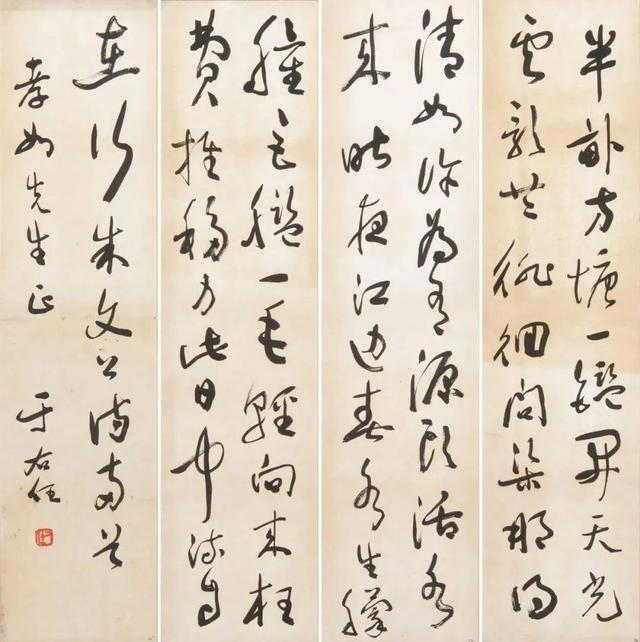 半畝方塘一鑑開天光
雲影共徘徊問渠那得
清如許為有源頭活水
來昨夜江邊春水生艨
艟巨艦一毛輕向來枉
費推移力此日中流自
在行朱文公詩兩首
孝如先生正 于右任